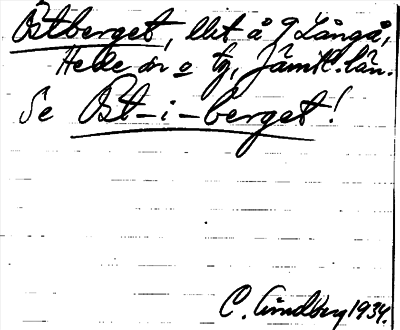 Östberget, lht å 9 Långå,
Hede sn o tg, Jämtl. län.
Se Öst-i-berget!
C. Lindberg 1934.